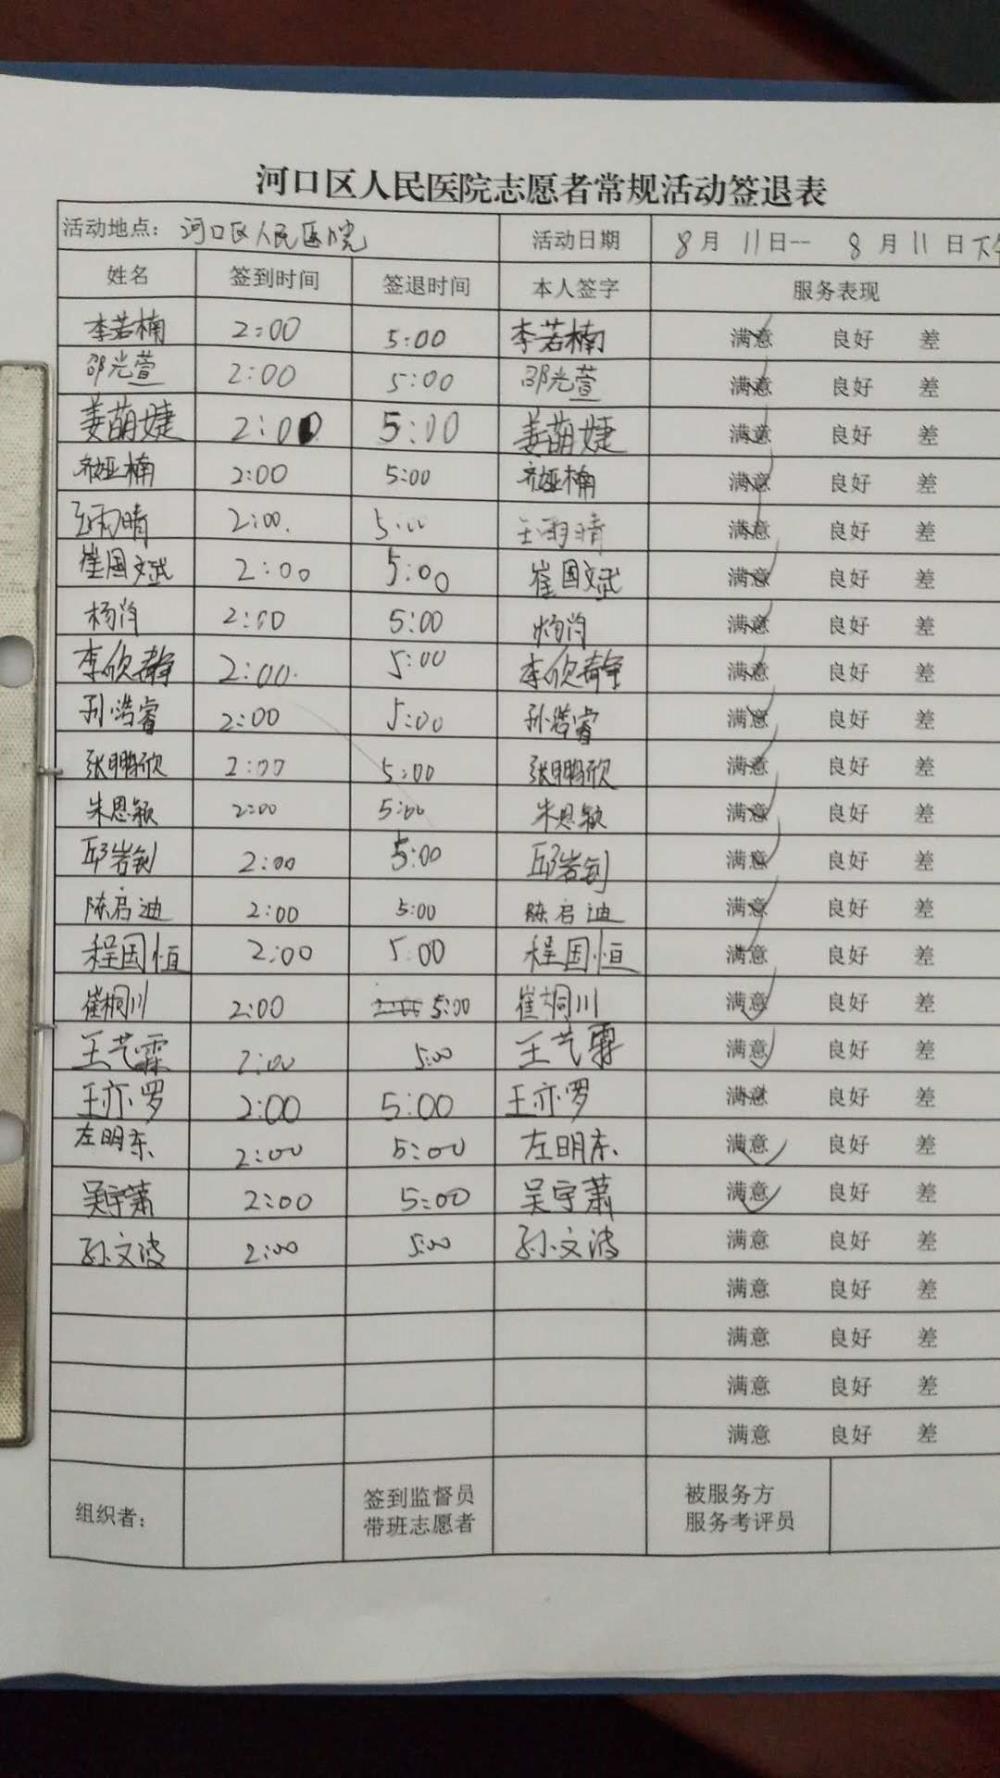 河口区人民医院志愿者常规活动签退表
活动地点：河口区人民医院 活动日期 8月11日--8月11日下午
姓名 签到时间 签退时间 本人签字 服务表现
李若楠 2:00 5:00 李若楠 满意 良好 差
邵光萱 2:00 5:00 邵光萱 满意 良好 差
姜萌婕 2:00 5:00 姜萌婕 满意 良好 差
齐娅楠 2:00 5:00 齐娅楠 满意 良好 差
王雨晴 2:00. 5:00 王雨晴 满意 良好 差
崔国文斌 2:00 5:00 崔国文斌 满意 良好 差
杨 2:00 5:00 杨 满意 良好 差
李欣静 2:00. 5:00 李欣静 满意 良好 差
孙浩睿 2:00 5:00 孙浩睿 满意 良好 差
张鹏欣 2:00 5:00 张鹏欣 满意 良好 差
朱恩颖 2:00 5:00 朱恩颖 满意 良好 差
邱岩钊 2:00 5:00 邱岩钊 满意 良好 差
陈启迪 2:00 5:00 陈启迪 满意 良好 差
程国恒 2:00 5:00 程国恒 满意 良好 差
崔桐川 2:00 5:00 崔桐川 满意 良好 差
王艺霖 2:00 5:00 王艺霖 满意 良好 差
王亦罗 2:00 5:00 王亦罗 满意 良好 差
左明东 2:00 5:00 左明东 满意 良好 差
吴宇萧 2:00 5:00 吴宇萧 满意 良好 差
孙文波 2:00 5:00 孙文波 满意 良好 差
满意 良好 差
满意 良好 差
满意 良好 差
满意 良好 差
组织者： 签到监督员 被服务方
带班志愿者 服务考评员